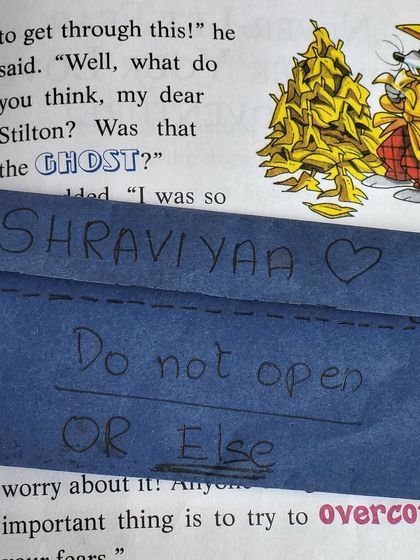 to get through this!” he
said. “Well, what do
you think, my dear
Stilton? Was that
the GHOST?”
“I was so
SHRAVIYAA ♡
Do not open
OR Else
worry about it!
important thing is to try to overco
your fears.”